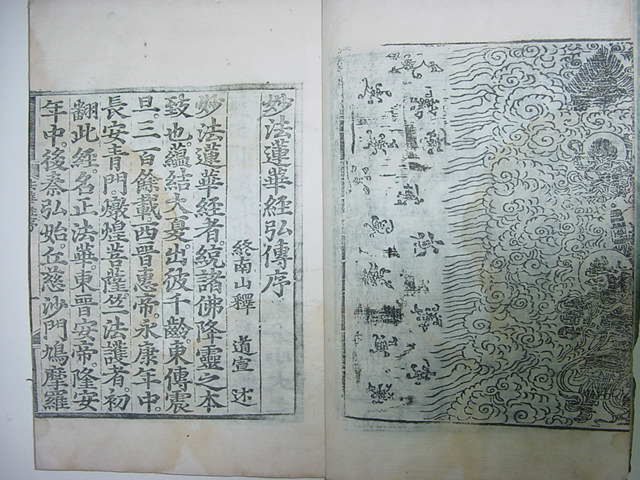 妙法蓮華經弘傳序
終南山釋 道宣 述
妙法蓮華經者。統諸佛降靈之本
致也。蘊結大夏。出彼千齡。東傳震
旦。三百餘載西晉惠帝。永康年中。
長安青門。燉煌菩薩竺法護者。初
翻此經。名正法華。東晉安帝。隆安
年中。後秦弘始。丘慈沙門鳩摩羅